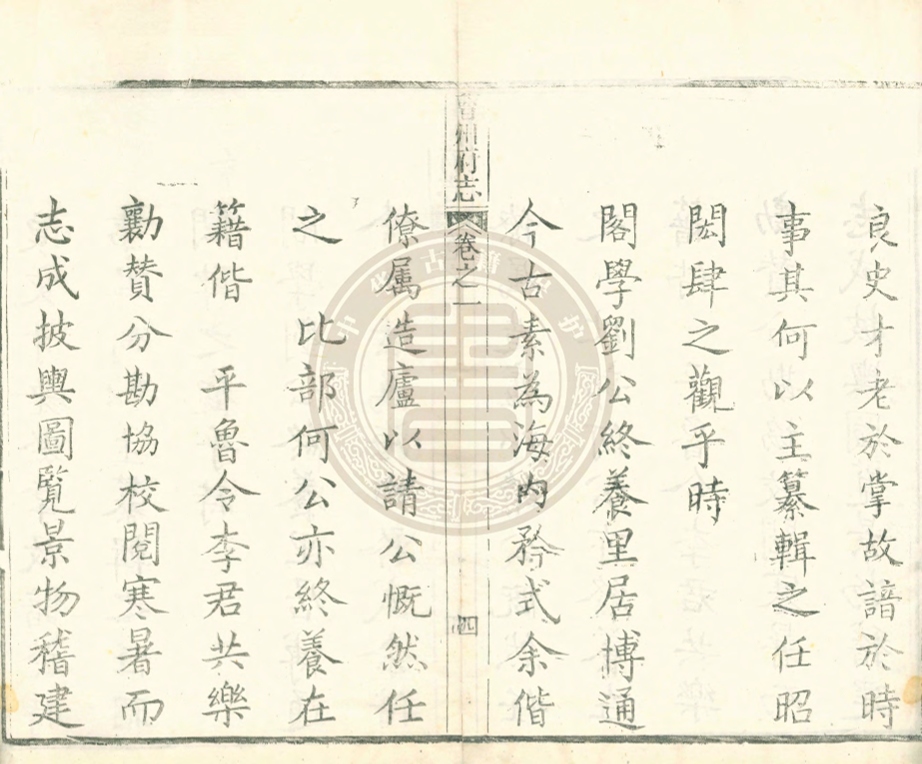 良史才老於掌故諳於時
事其何以主纂輯之任昭
閎肆之觀乎時
閣學劉公終養里居博通
今古素為海内矜式余偕
州府志 卷之一 四
僚属造廬以請公慨然任
之 比部何公亦終養在
籍偕 平魯令李君共樂
勷賛分勘協校閱寒暑而
志成披輿圖覧景物稽建